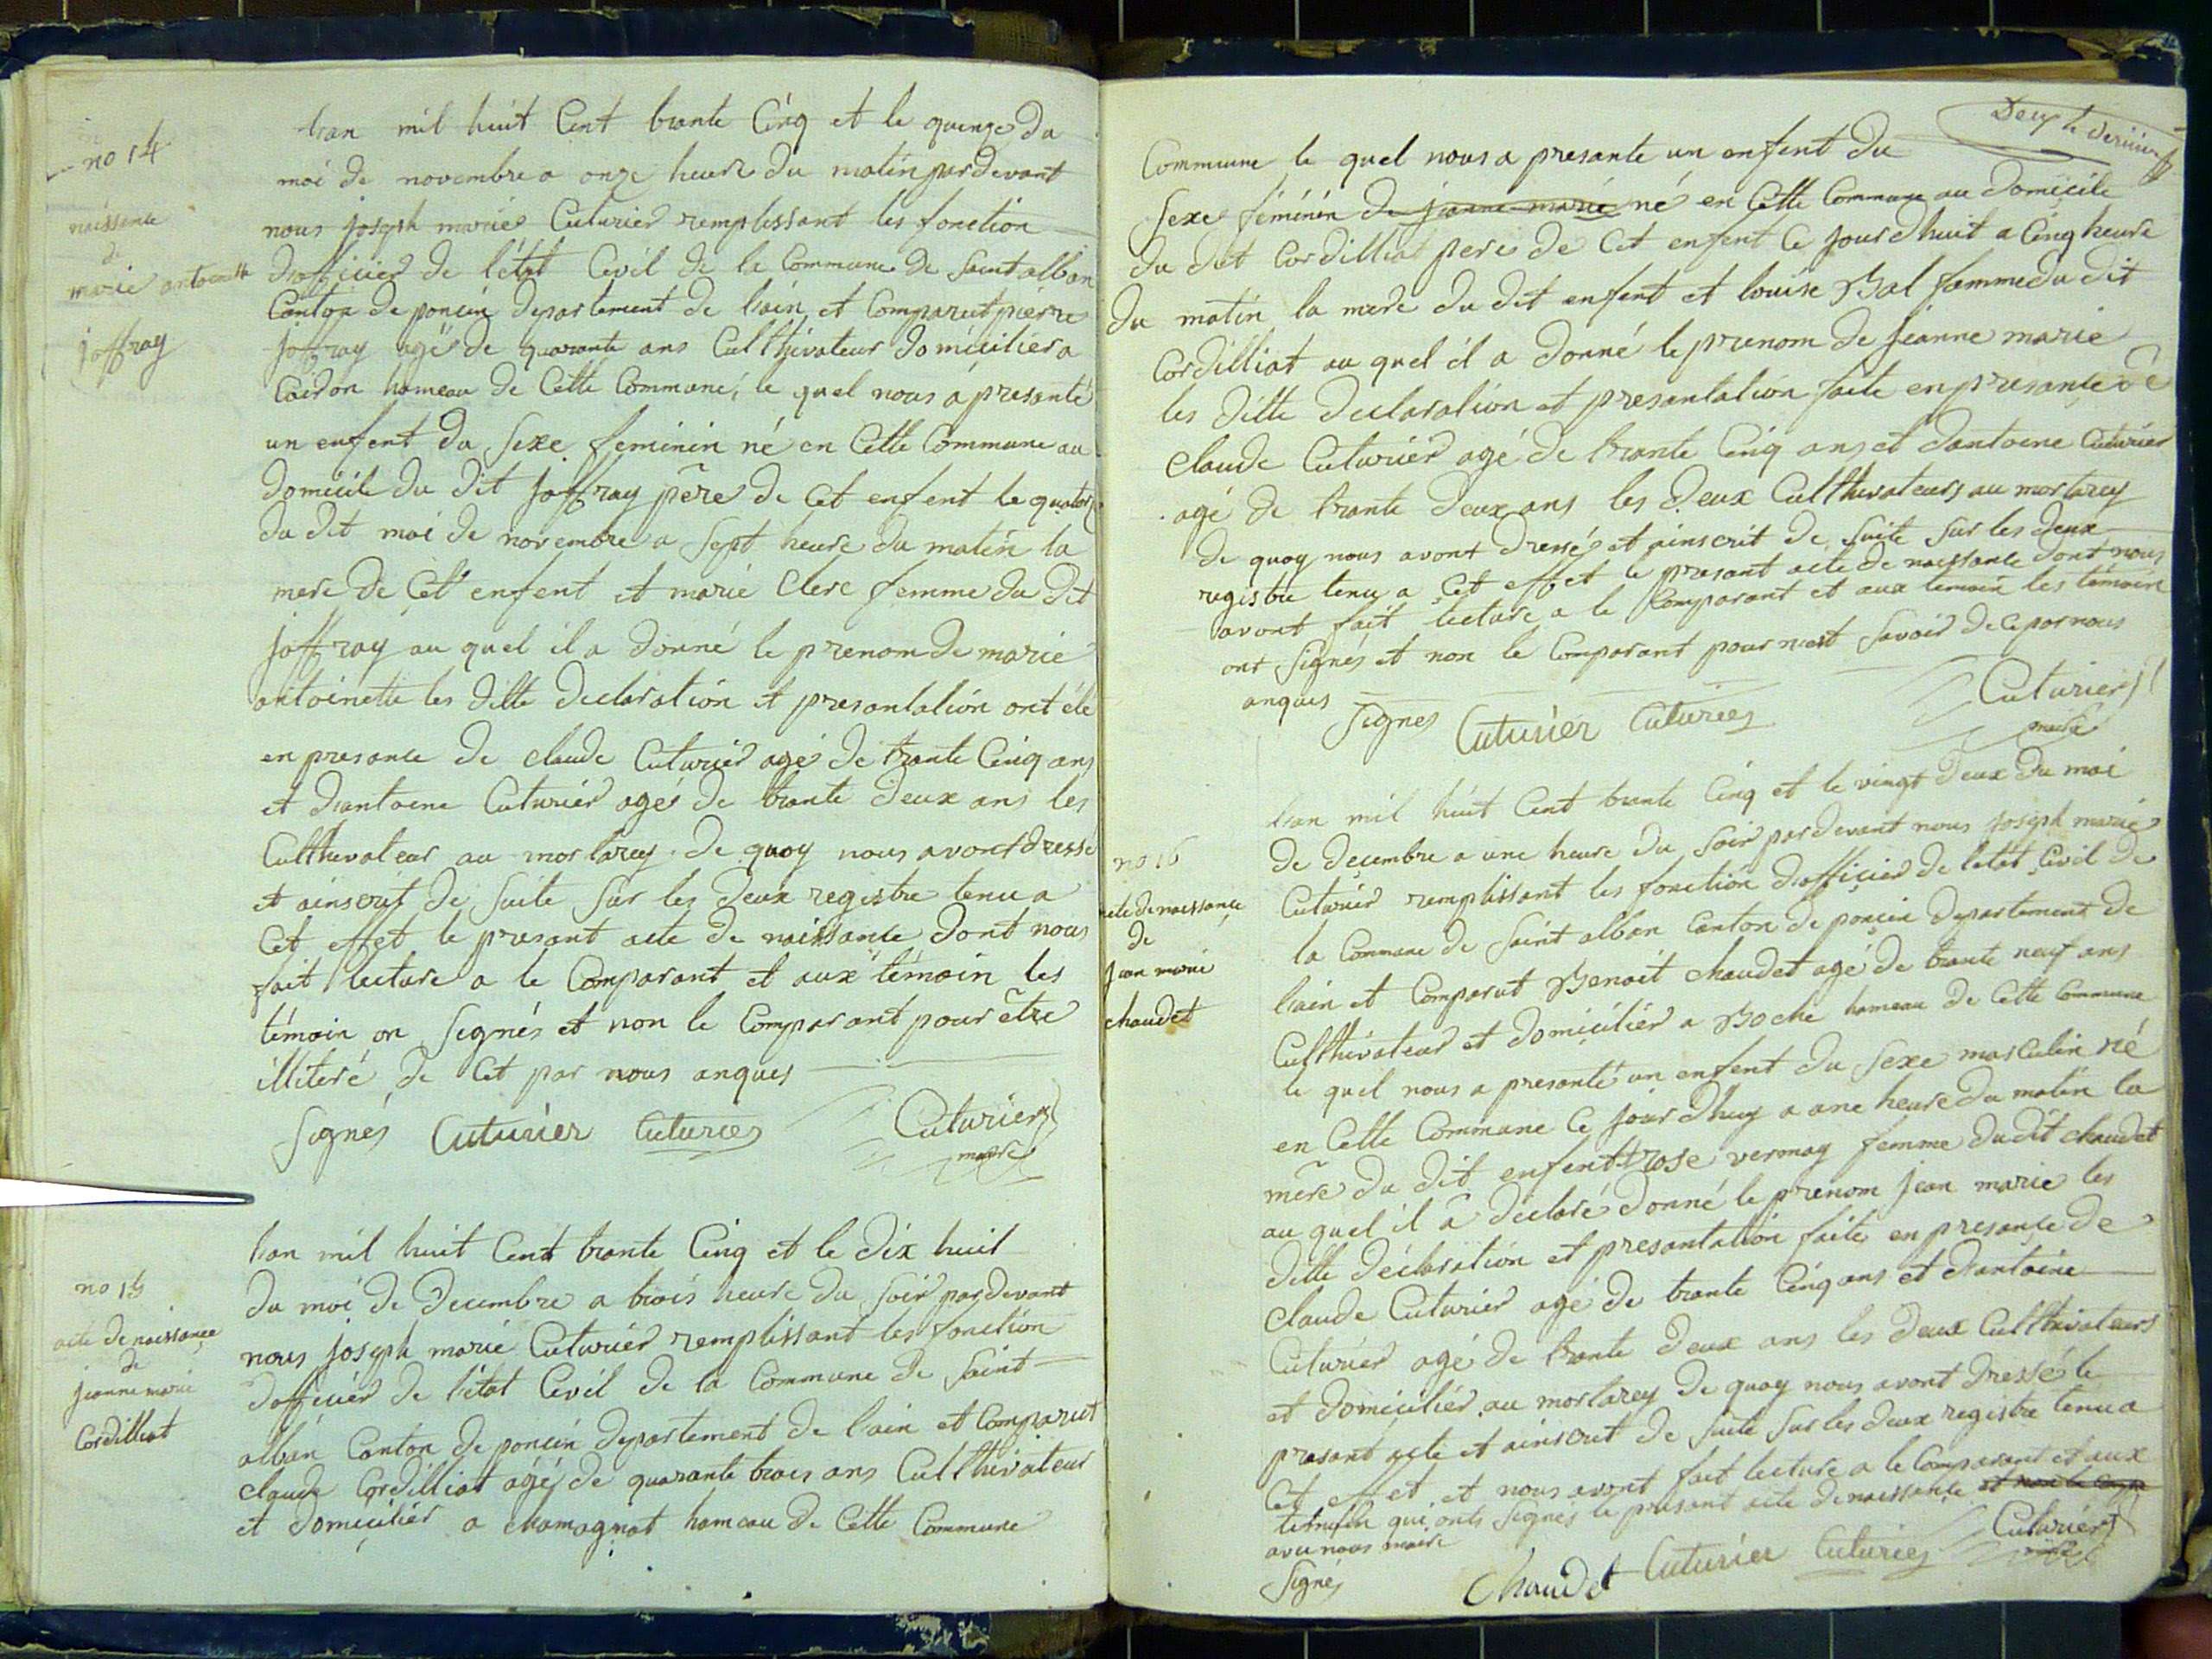 no 14
naissance
de
marie antoinette
joffray
Lan mil huit Cent trante Cinq et le quinze du
moi de novembre a onze heure du matin par devant
nous joseph marie Cuturier remplissant les fonction
dofficier de létat Civil de la Commune de Saint alban
Canton de poncin departement de lain et Comparut pierre
joffray agé de quarante ans Culthivateur domicilier a
hameau de Cette Commune, le quel nous a presanté
un enfent du Sexe feminin né en Cette Commune au
domicile du dit joffray père de Cet enfent le quatorze
du dit moi de novembre a Sept heure du matin la
mere de Cet enfent et marie Clerc femme du dit
joffray au quel il a donné le prenom de marie
antoinette les ditte declaration et presantation ont été
en presance de claude Cuturier agé de trante Cinq ans
et dantoine Cuturier agé de trante deux ans les
Culthivateur au mortarey de quoy nous avont dressé
et ainscrit de Suite Sur les deux registre tenu a
Cet effet le presant acte de naissance dont nous
fait lecture a le Comparant et aux témoin les
témoin on Signés et non le Comparant pour être
illiteré de Cet par nous anquis
Signés Cuturier Cuturier Cuturier
maire
no 15
acte de naissance
de
jeanne marie
Cordilliat
Lan mil huit Cent trante Cinq et le dix huit
du moi de decembre a trois heure du Soir par devant
nous joseph marie Cuturier remplissant les fonction
dofficier de létat Civil de la Commune de Saint
alban Canton de poncin departement de lain et Comparut
claude Cordilliat agé de quarante trois ans Culthivateur
et domicilier a chamagnat hameau de Cette Commune
Commune le quel nous a presante un enfent du
Sexe féminin de jeanne marie né en Cette Commune au domicile
du dit Cordilliat pere de Cet enfent Ce jour dhuit a Cinq heure
du matin la mere du dit enfent et louise Bal famme du dit
Cordilliat au quel il a donné le prenom de jeanne marie
les ditte declaration et presantation faite en presance de
claude Cuturier agé de trante Cinq ans et dantoine Cuturier
agé de trante deux ans les deux Culthivateurs au mortarey
de quoy nous avont dressé et ainscrit de Suite Sur les deux
registre tenu a Cet effet le presant acte de naissance dont nous
avont fait lecture a le Comparant et aux temoin les témoin
ont Signés et non le Comparant pour nest Savoir de Ce par nous
anquis
Signes Cuturier Cuturier Cuturier
maire
no 16
acte de naissance
de
jean marie
chaudet
Lan mil huit Cent trante Cinq et le vingt deux du moi
de decembre a une heure du Soir par devant nous joseph marie
Cuturier remplissant les fonction dofficier de létat Civil de
la Commune de Saint alban Canton de poncin departement de
lain et Comparut Benoit chaudet agé de trante neuf ans
Culthivateur et domicilier a Boche hameau de Cette Commune
le quel nous a presanté un enfent du Sexe masculin né
en Cette Commune Ce jour dhuy a une heure du matin la
mère du dit enfent et rose vermay femme du dit chaudet
au quel il a declaré donné le prenom jean marie les
ditte déclaration et presantation faite en presance de
claude Cuturier agé de trante Cinq ans et dantoine
Cuturier agé de trante deux ans les deux Culthivateurs
et domicilier au mortarey de quoy nous avont dressé le
presant acte et ainscrit de Suite Sur les deux registre tenu a
Cet effet et nous avont fait lecture a le Comparant et aux
temoin qui onts Signés le présent acte de naissance et non le comp
avec nous maire
Signés Chaudet Cuturier Cuturier Cuturier
maire